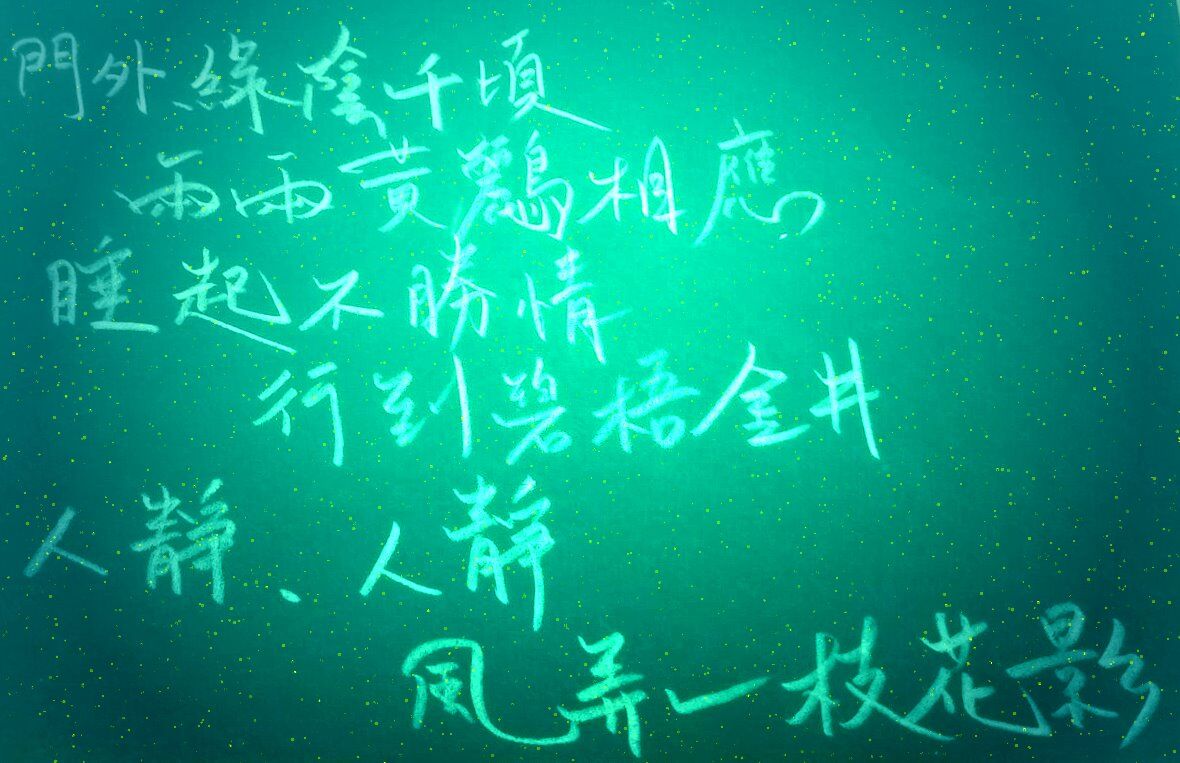 門外綠陰千頃
兩兩黃鸝相應
睡起不勝情
行到碧梧金井
人靜、人靜
風弄一枝花影